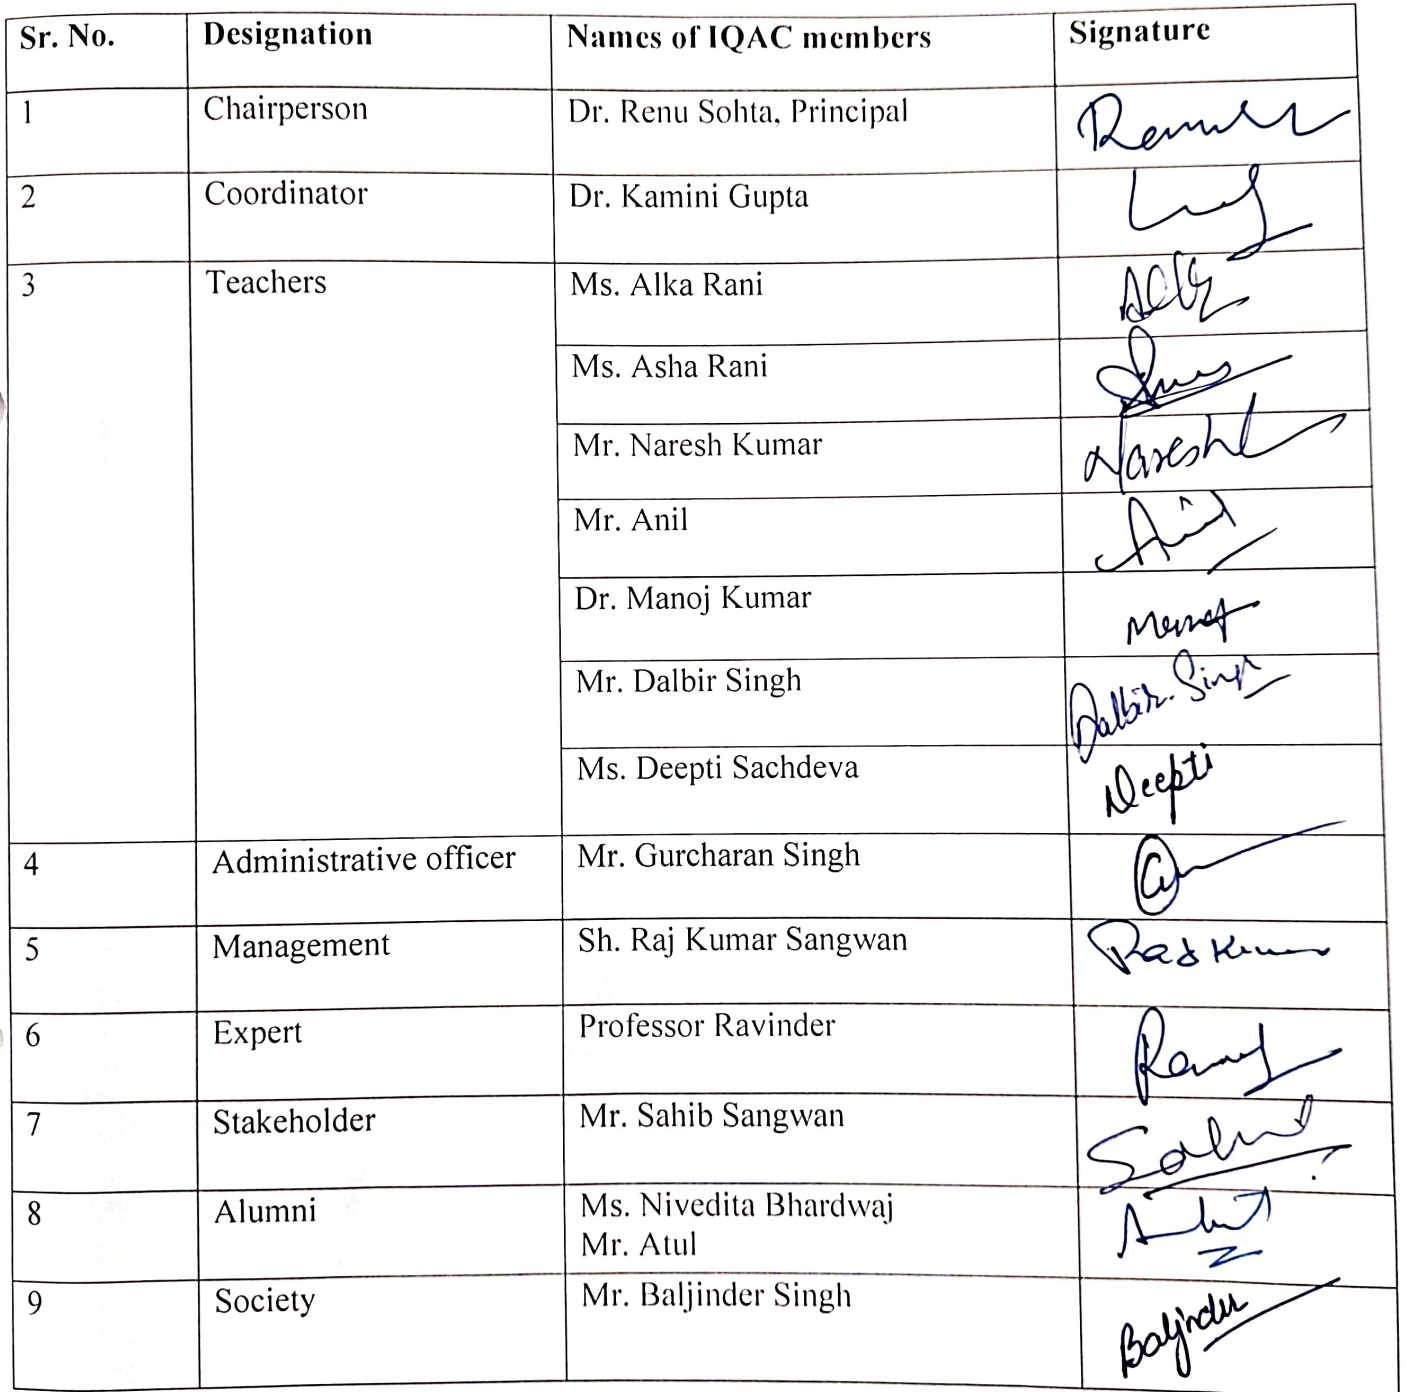 Sr. No. Designation Names of IQAC members Signature
1 Chairperson Dr. Renu Sohta, Principal
2 Coordinator Dr. Kamini Gupta
3 Teachers Ms. Alka Rani
Ms. Asha Rani
Mr. Naresh Kumar Naresh
Mr. Anil Anil
Dr. Manoj Kumar
Mr. Dalbir Singh Dalbir Singh
Ms. Deepti Sachdeva Deepti
4 Administrative officer Mr. Gurcharan Singh
5 Management Sh. Raj Kumar Sangwan Raj Kumar
6 Expert Professor Ravinder
7 Stakeholder Mr. Sahib Sangwan
8 Alumni Ms. Nivedita Bhardwaj
Mr. Atul
9 Society Mr. Baljinder Singh Baljinder